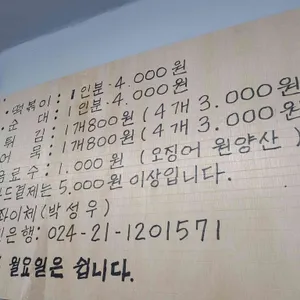 떡볶이 : 1인분 4.000원
순 대 : 1인분 4.000원
튀 김 : 1개800원 (4개 3.000원)
어 묵 : 1개800원 (4개 3.000원)
음료수 : 1.000원 (오징어 원양산)
드결제는 5.000원 이상입니다.
좌이체 (박성우)
은행: 024-21-1201571
월요일은 쉽니다.